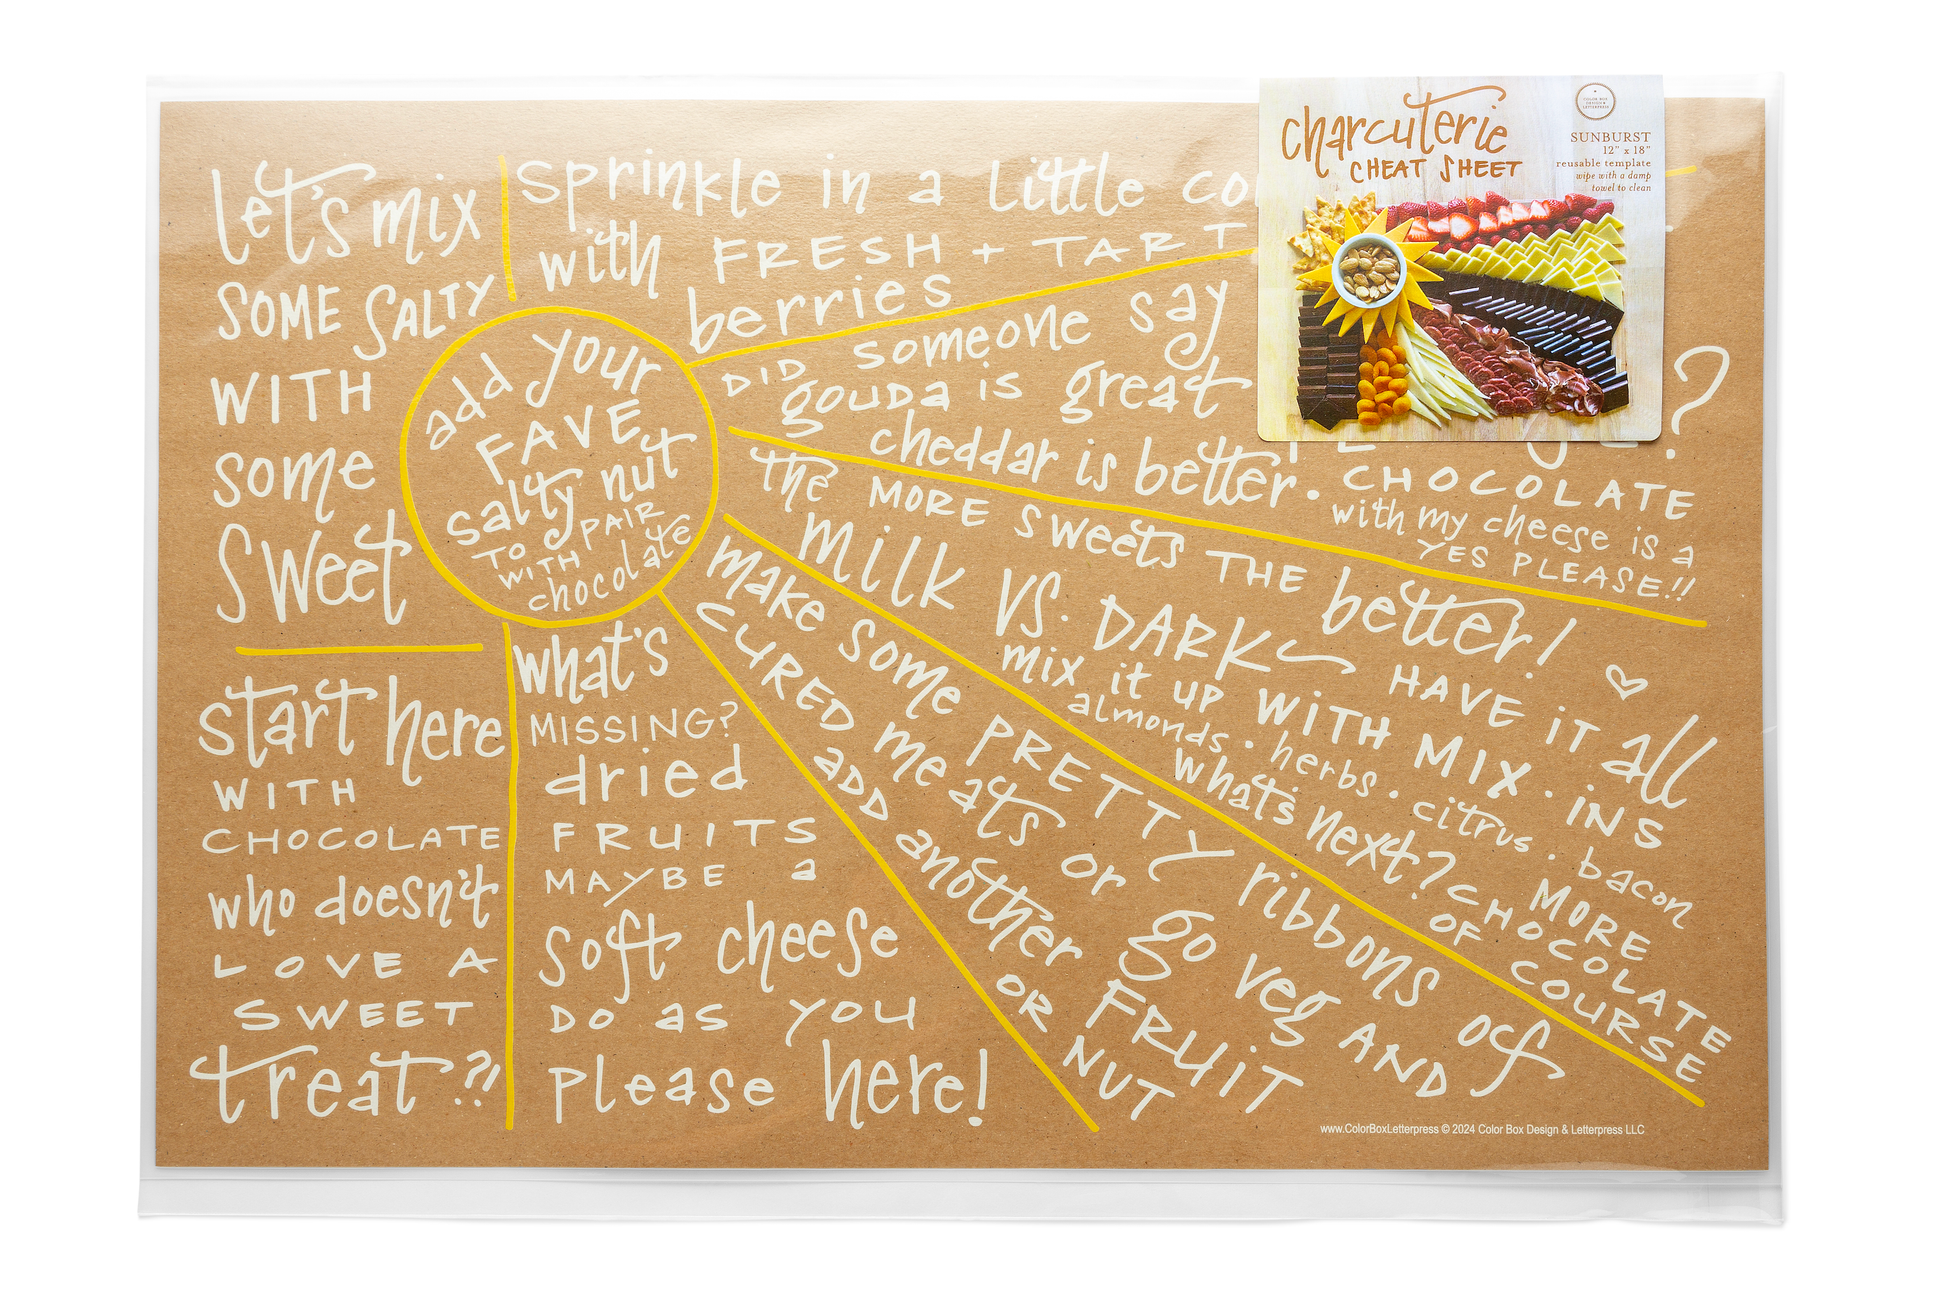 Let's mix
SOME SALTY
WITH
some
sweet
add your
FAVE
salty nut
TO PAIR
WITH
chocolate
sprinkle in a little
with FRESH + TART
berries
DID someone say
GOUDA is great
cheddar is better.
?
CHOCOLATE
with my cheese is a
YES PLEASE!!
the MORE sweets THE better!
milk VS. DARK HAVE IT all
mix it up WITH MIX·INS
almonds·herbs·citrus·bacon
what's next? MORE
CHOCOLATE
OF COURSE
make some PRETTY ribbons of
CURED meats or go veg AND
ADD another FRUIT
OR NUT
what's
MISSING?
dried
FRUITS
MAYBE a
soft cheese
DO as YOU
please here!
start here
WITH
CHOCOLATE
who doesn't
LOVE A
SWEET
treat?!
www.ColorBoxLetterpress © 2024 Color Box Design & Letterpress LLC
charcuterie
CHEAT SHEET
COLOR BOX
DESIGN &
LETTERPRESS
SUNBURST
12" x 18"
reusable template
wipe with a damp
towel to clean